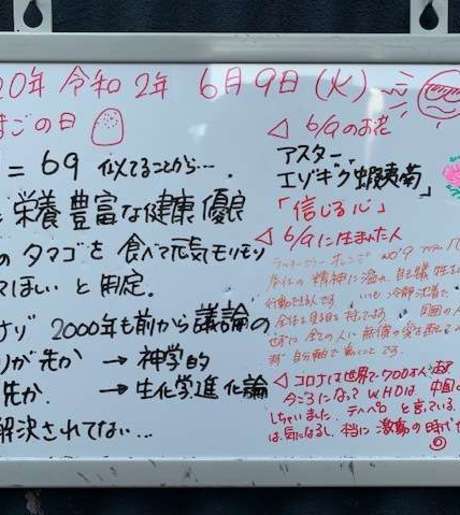 20年 令和2年 6月9日(火)
まごの日
= 69 似てることから….
栄養豊富な健康優良
のタマゴを食べて元気モリモリ
てほしいと制定.
ナゾ 2000年も前から議論の
りが先か → 神学的
先か. → 生化学進化論
解決されてない…
◁ 6/9のお花
アスター、
エゾギク蝦夷菊」
「信じる心」
◁ 6/9に生まれた人
オレンジ NO'9
の精神に溢れ、自己犠牲
いつも冷静沈着で、
責任を
世に全ての人に無償の愛を
◁ コロナは世界で700万人
今ごろになってWHOは中国
しちゃいました、テヘペロと言っている
は、気になるし、本当に激動の時代